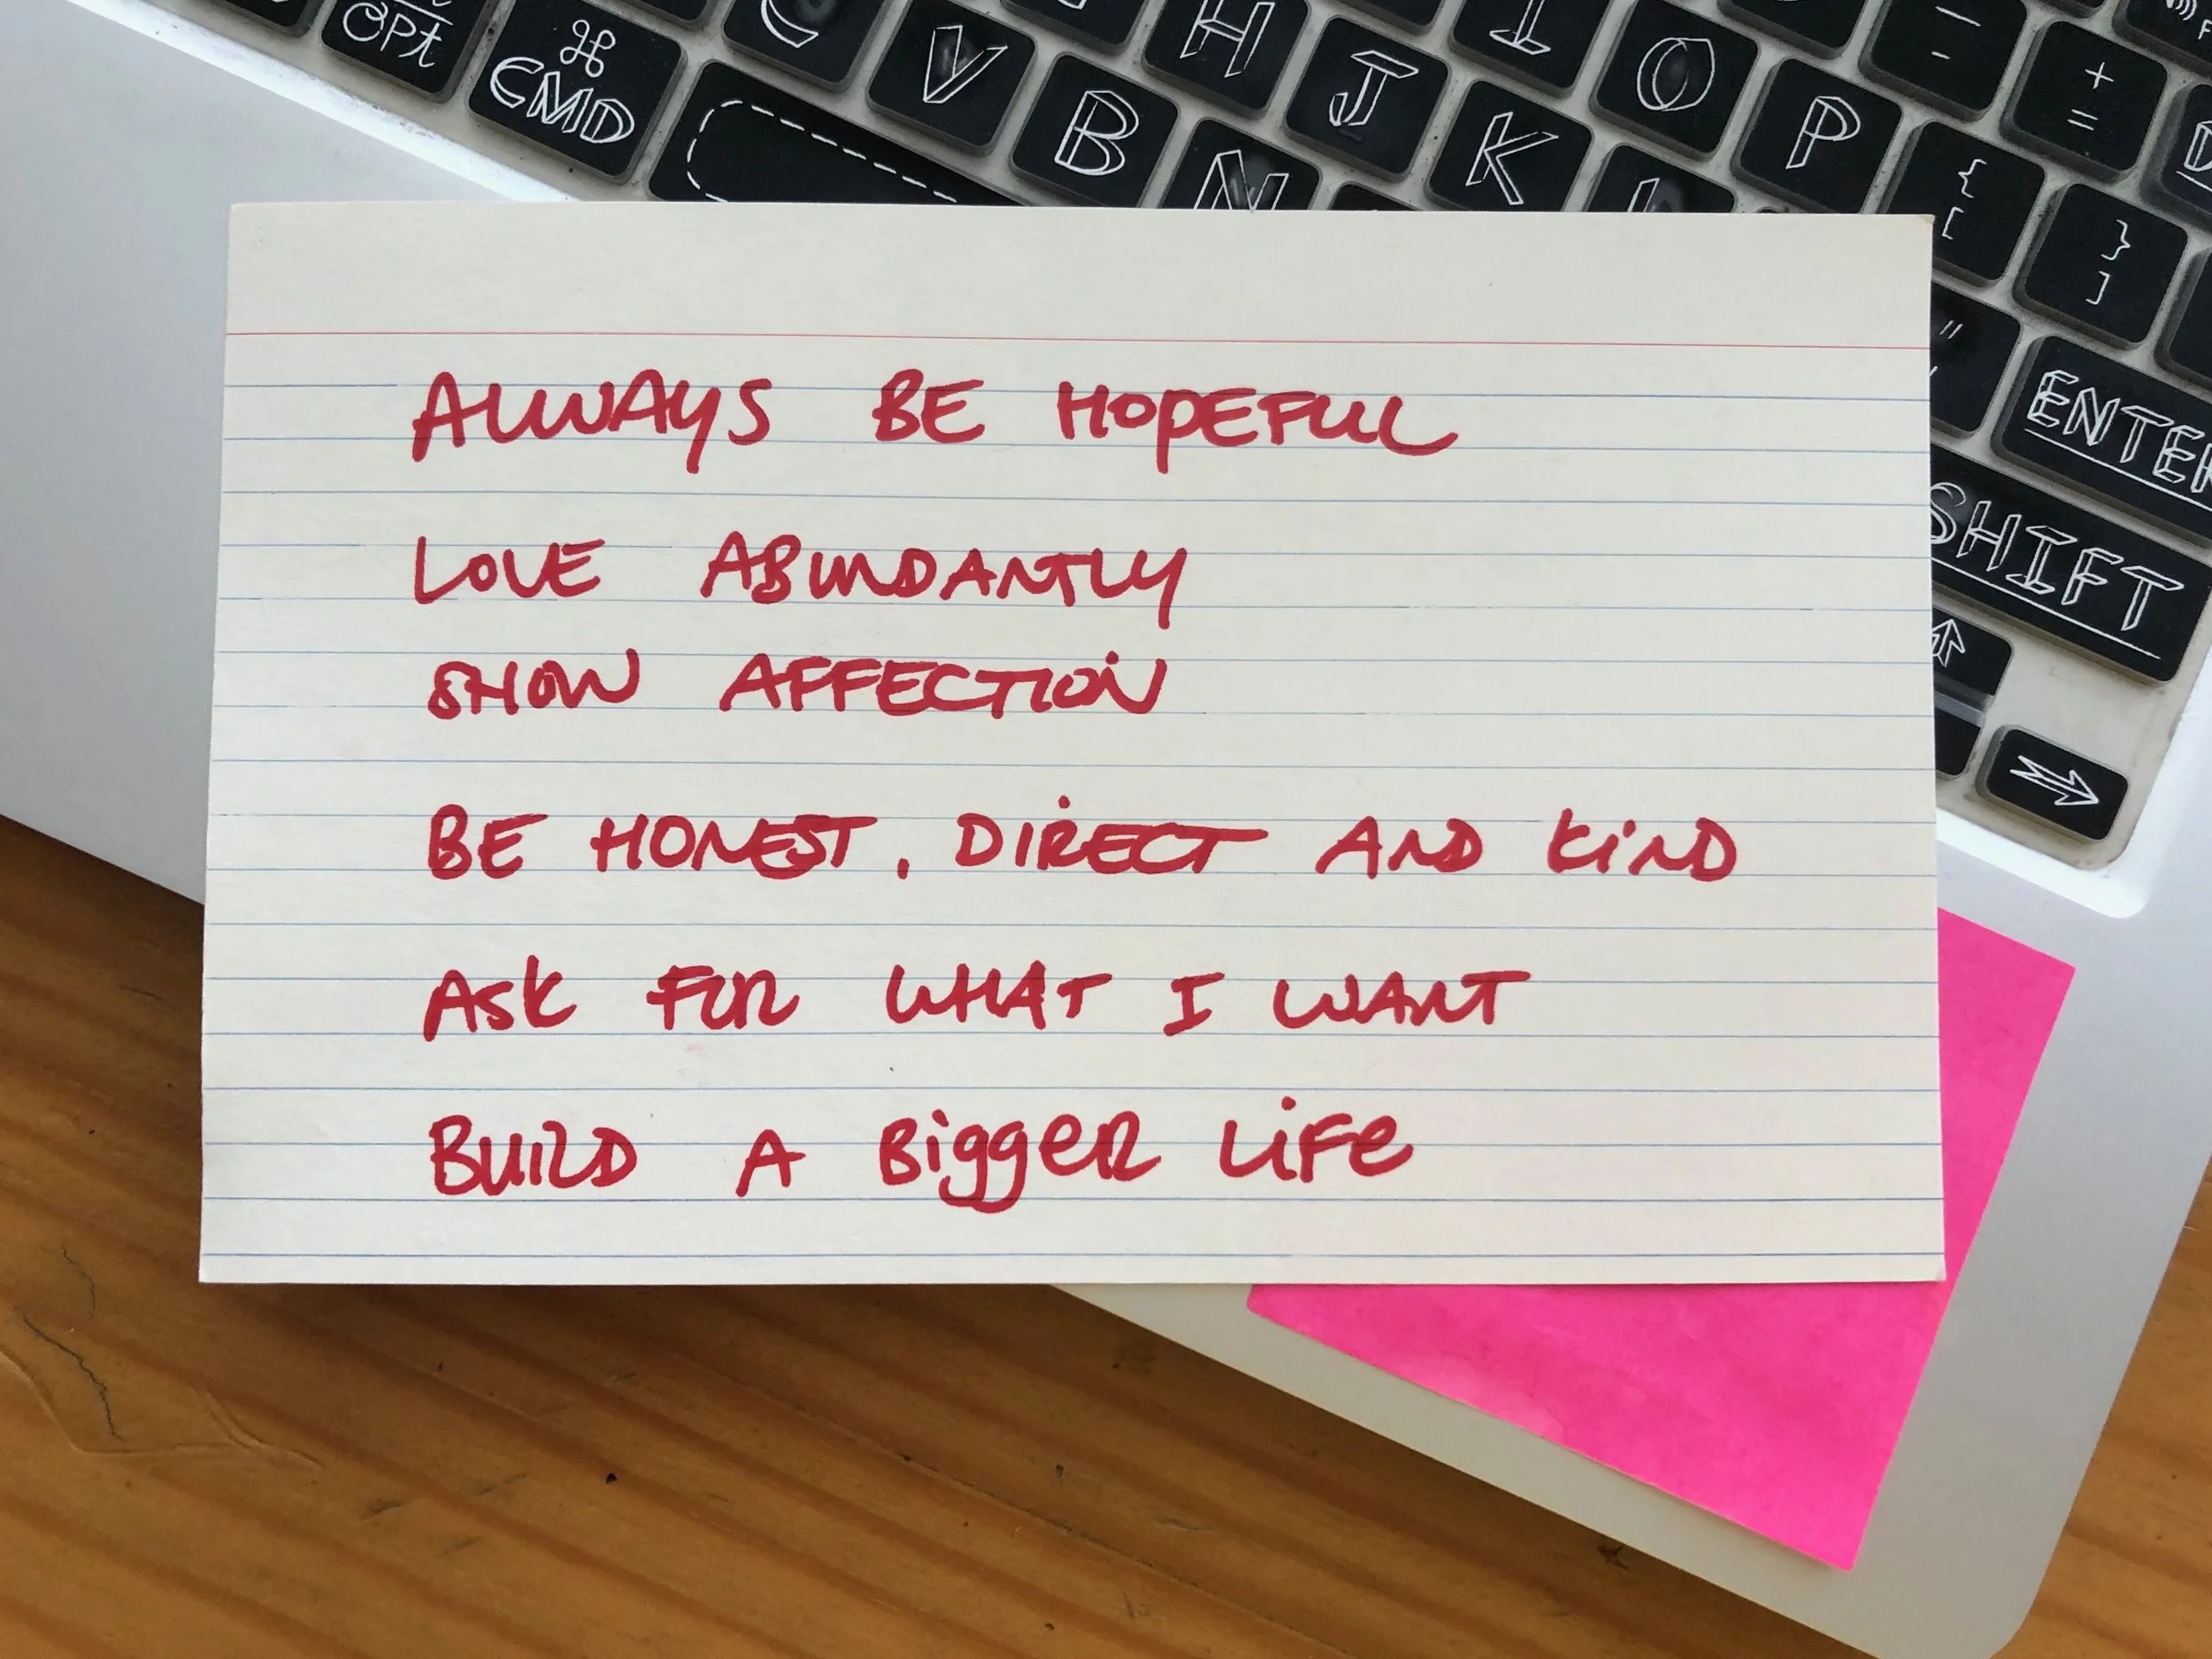 OPT
⌘
CMD
V
B
N
H
J
K
L
I
O
P
-
+
=
{
[
}
]
"
ENTER
SHIFT
ALWAYS BE HOPEFUL
LOVE ABUNDANTLY
SHOW AFFECTION
BE HONEST, DIRECT AND KIND
ASK FOR WHAT I WANT
BUILD A BIGGER LIFE